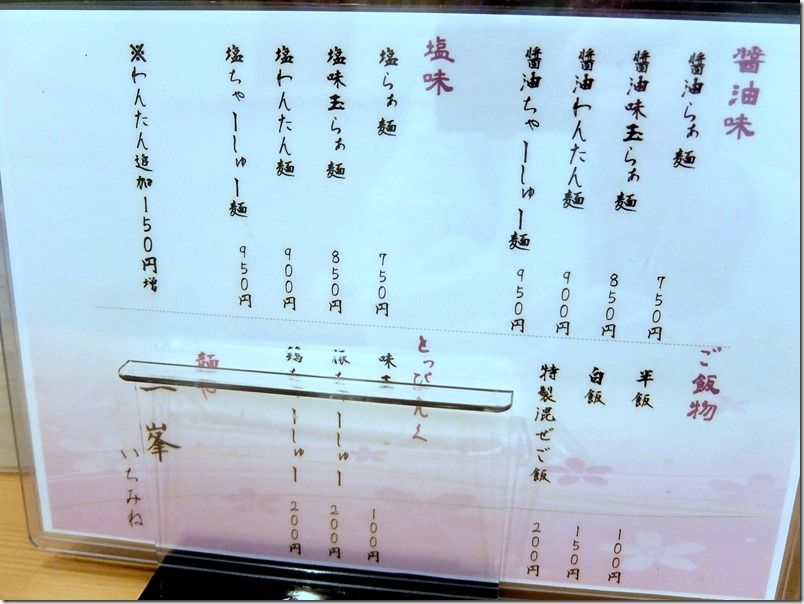 醤油味
醤油らぁ麺 750円
醤油味玉らぁ麺 850円
醤油わんたん麺 900円
醤油ちゃーしゅー麺 950円
塩味
塩らぁ麺 750円
塩味玉らぁ麺 850円
塩わんたん麺 900円
塩ちゃーしゅー麺 950円
※わんたん追加150円増
ご飯物
半飯 100円
白飯 150円
特製混ぜご飯 200円
とっぴんぐ
味玉 100円
豚ちゃーしゅー 200円
鶏ちゃーしゅー 200円
麺や
一峯
いちみね